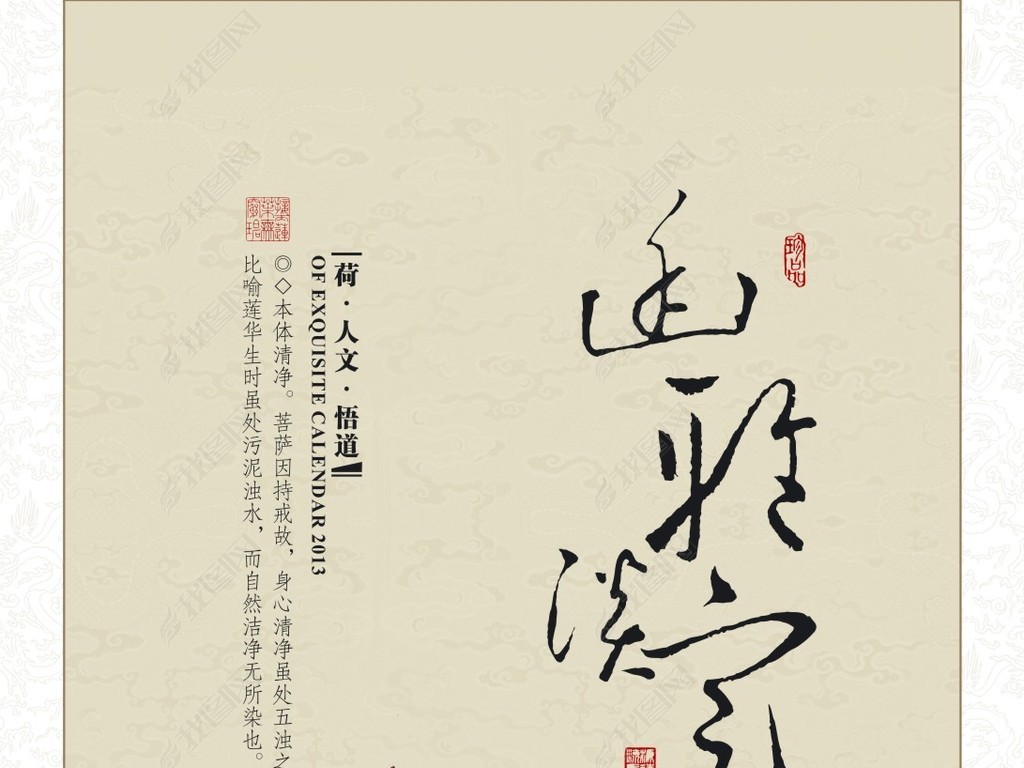 幽雅
淡
珍品
荷·人文·悟道
OF EXQUISITE CALENDAR 2013
◎◇本体清净。菩萨因持戒故，身心清净虽处五浊之
比喻莲华生时虽处污泥浊水，而自然洁净无所染也。
我图网